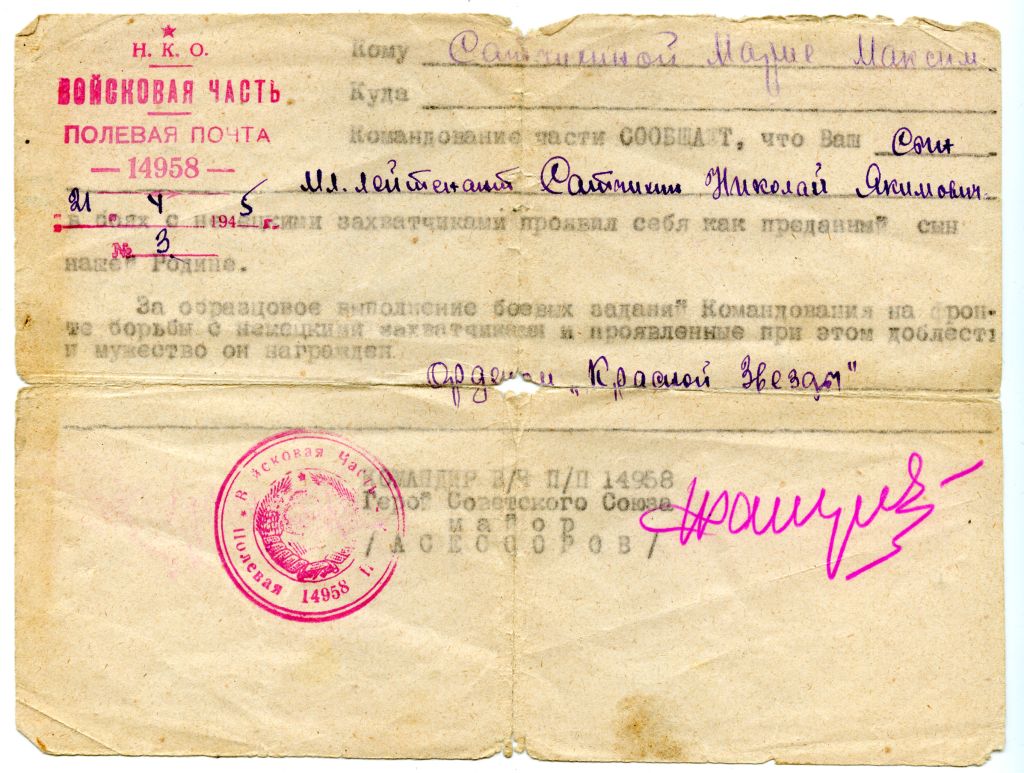 Н. К. О.
ВОЙСКОВАЯ ЧАСТЬ
ПОЛЕВАЯ ПОЧТА
— 14958 —
21 . 4 1945 г.
№ 3
Кому Сатчиной Марие Максим
Куда
Командование части СООБЩАЕТ, что Ваш сын
Мл. лейтенант Сатчикин Николай Якимович
в боях с немецкими захватчиками проявил себя как преданный сын
нашей Родине.
За образцовое выполнение боевых заданий Командования на фрон-
те борьбы с немецкими захватчиками и проявленные при этом доблесть
и мужество он награжден
Орденом „Красной Звезды"
КОМАНДИР В/Ч П/П 14958
Герой Советского Союза
майор
/АСЕССОРОВ/
Войсковая Часть
Полевая 14958 П.